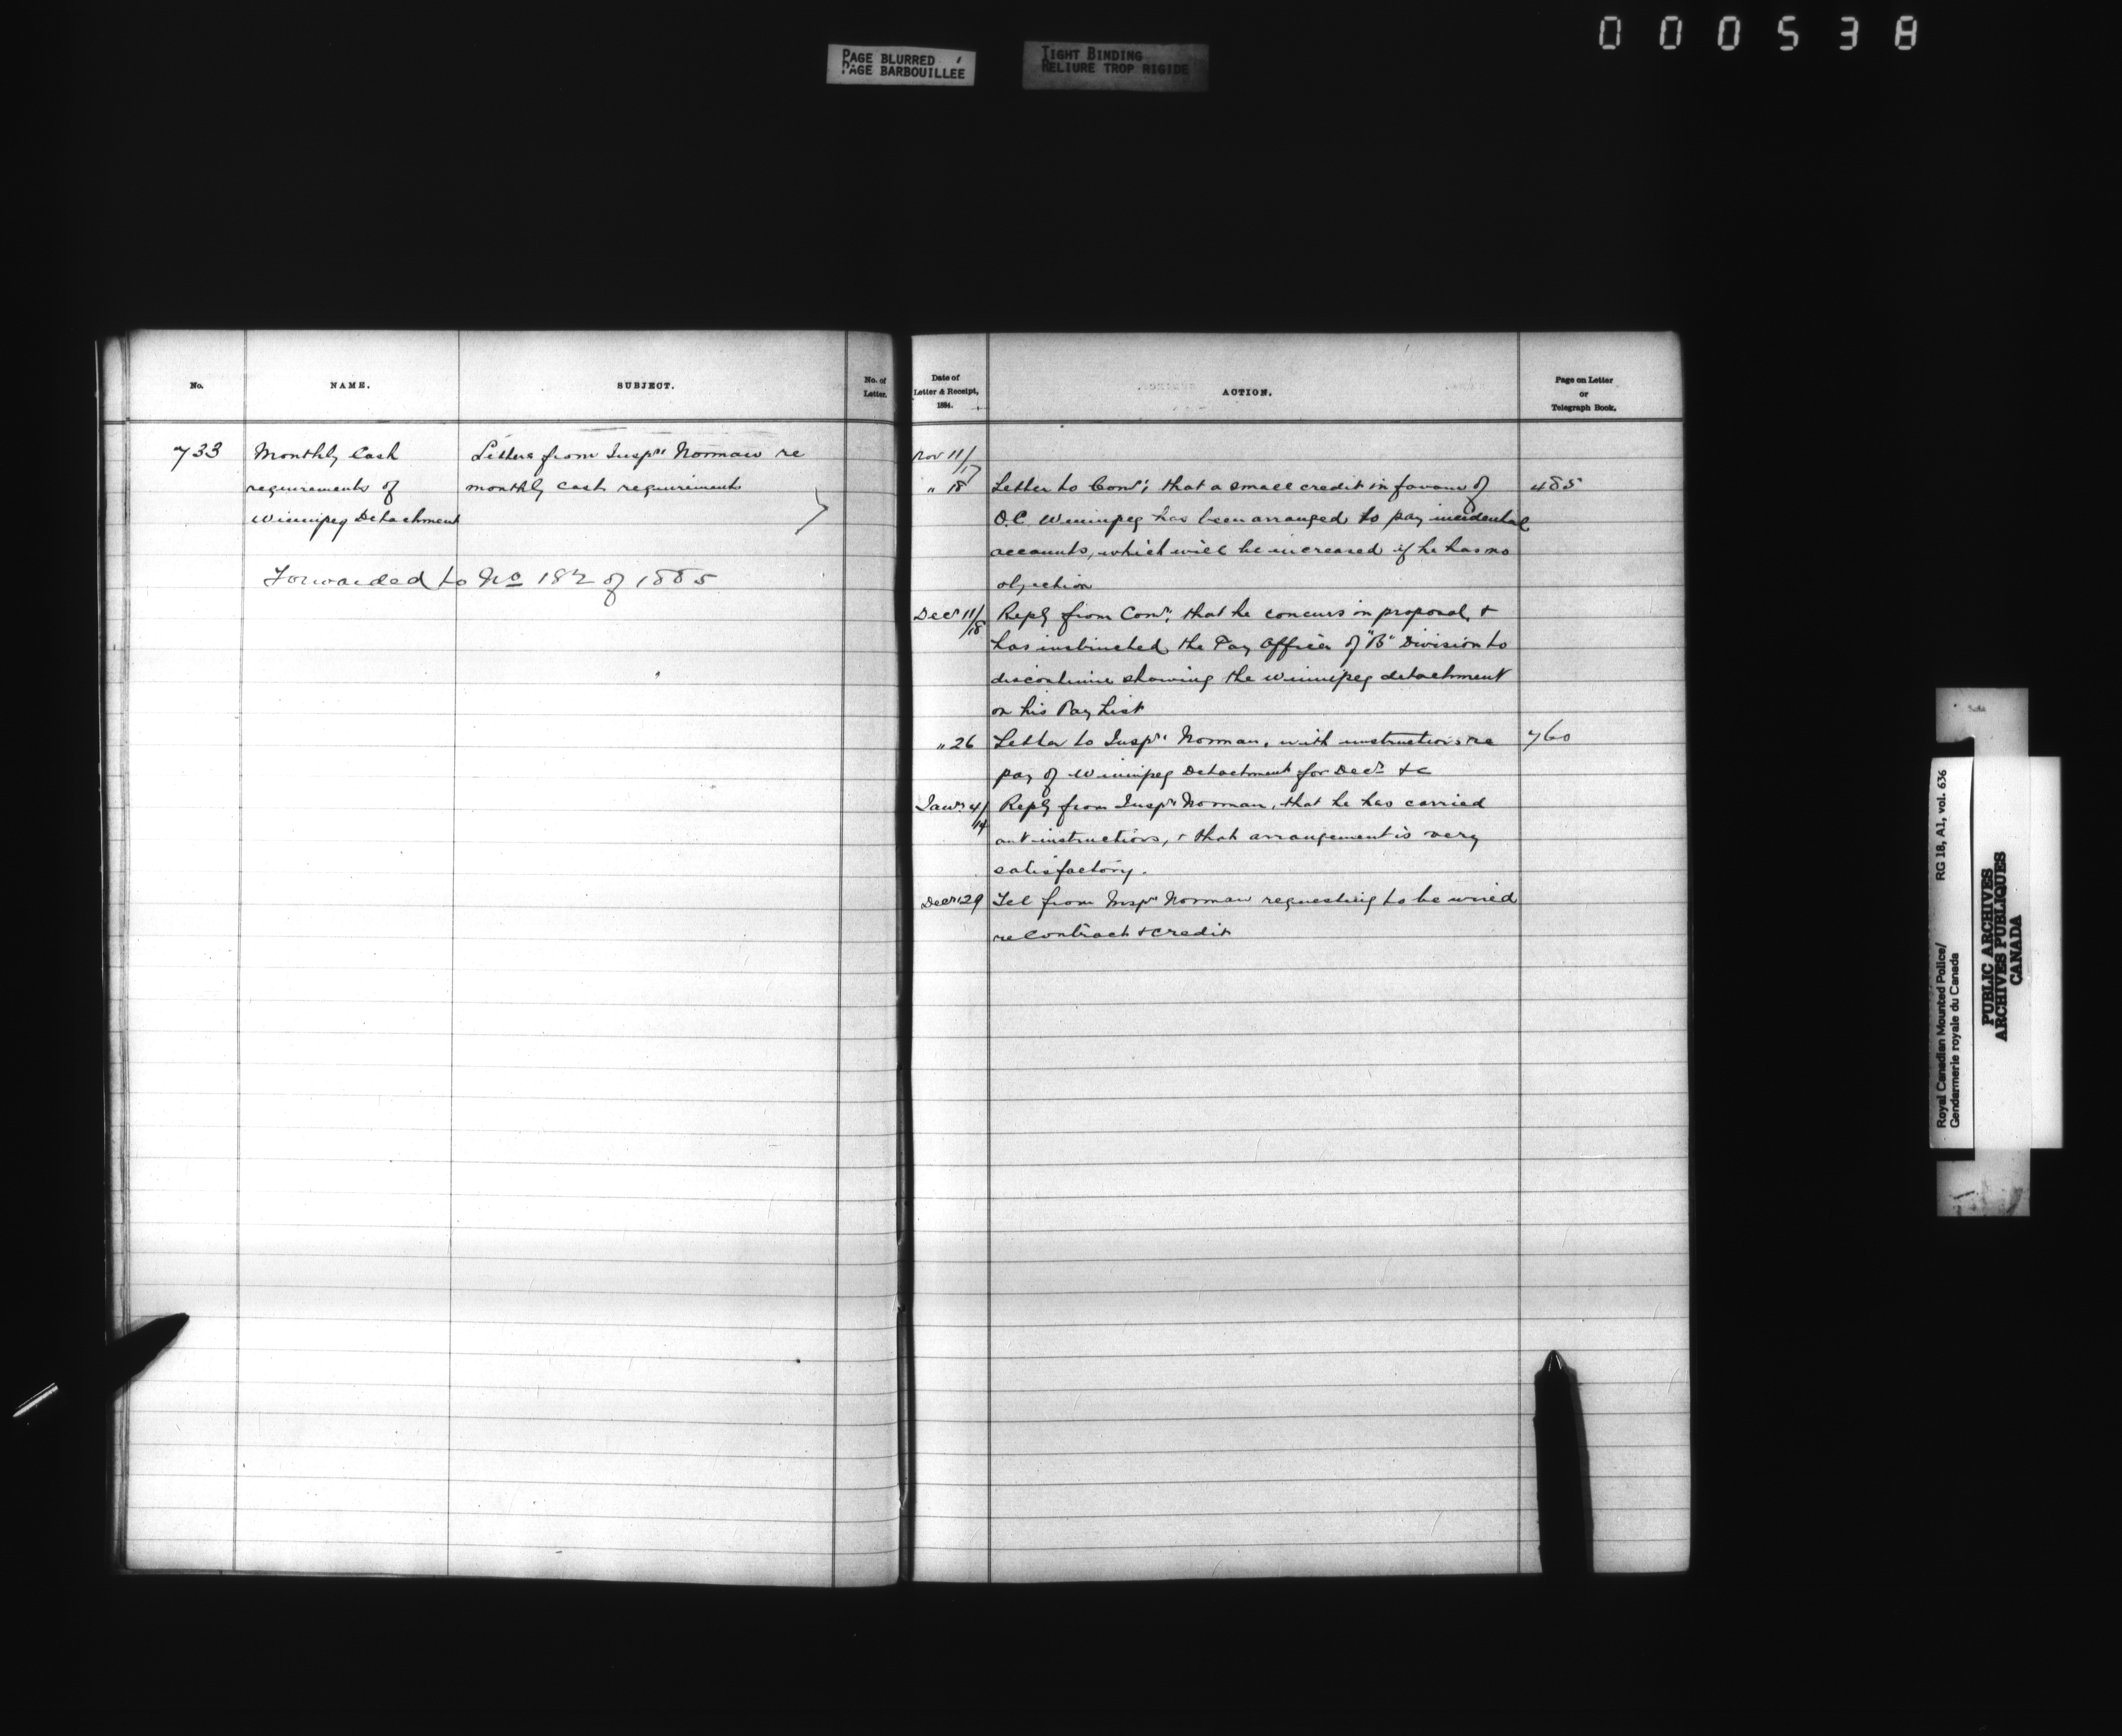 000538
PAGE BLURRED
PAGE BARBOUILLEE
TIGHT BINDING
RELIURE TROP RIGIDE
No.
NAME.
SUBJECT.
No. of
Letter.
733
Monthly Cash
requirements of
Winnipeg Detachment
Letters from Inspr Norman re
monthly cash requirements
Forwarded to No 182 of 1885
Date of
Letter & Receipt,
1884.
ACTION.
Page on Letter
or
Telegraph Book.
Nov 11/17
" 18 Letter to Comr; that a small credit in favour of 485
O.C. Winnipeg has been arranged to pay incidental
accounts, which will be increased if he has no
objection
Decr 11/18 Reply from Comr; that he concurs in proposal, &
has instructed the Pay Officer of "B" Division to
discontinue showing the Winnipeg detachment
on his Pay List
" 26 Letter to Inspr Norman, with instructions re 760
pay of Winnipeg Detachment for Decr &c
Jany 4/14 Reply from Inspr Norman, that he has carried
out instructions, & that arrangement is very
satisfactory.
Decr 29 Tel from Inspr Norman requesting to be wired
re Contract & credit
Royal Canadian Mounted Police/ RG 18, A1, vol. 636
Gendarmerie royale du Canada
PUBLIC ARCHIVES
ARCHIVES PUBLIQUES
CANADA